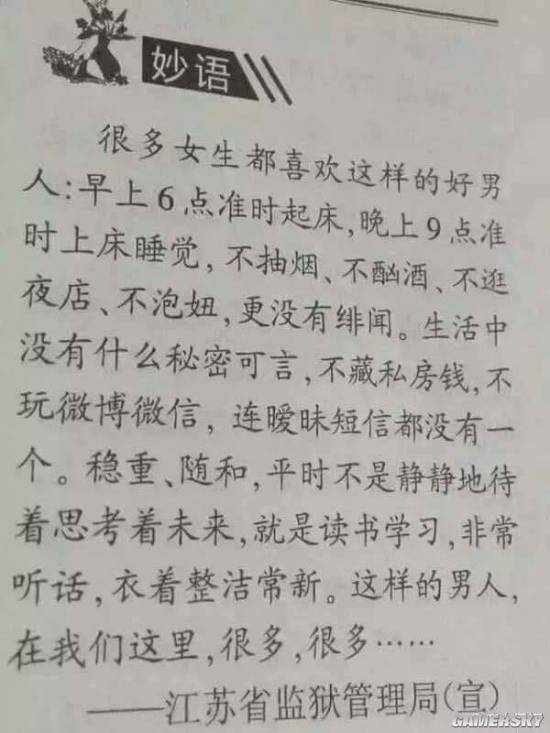 妙语
很多女生都喜欢这样的好男
人：早上6点准时起床，晚上9点准
时上床睡觉，不抽烟、不酗酒、不逛
夜店、不泡妞，更没有绯闻。生活中
没有什么秘密可言，不藏私房钱，不
玩微博微信，连暧昧短信都没有一
个。稳重、随和，平时不是静静地待
着思考着未来，就是读书学习，非常
听话，衣着整洁常新。这样的男人，
在我们这里，很多，很多……
——江苏省监狱管理局（宣）
GAMERSKY